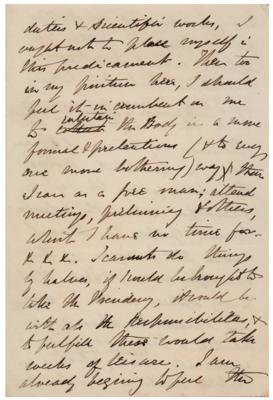 duties & scientific works, I
ought not to place myself in
this predicament. Then too
in my position here, I should
feel it incumbent on me
to entertain the Body in a more
formal & pretentious (& to every
one more bothering) way than
I can as a free man; attend
meetings, preliminary & others,
which I have no time for
&. &. &. I cannot do things
by halves, if I could be brought to
take the Presidency, it would be
with all the responsibilities, &
to fulfill these would take
weeks of leisure. I am
already beginning to feel the